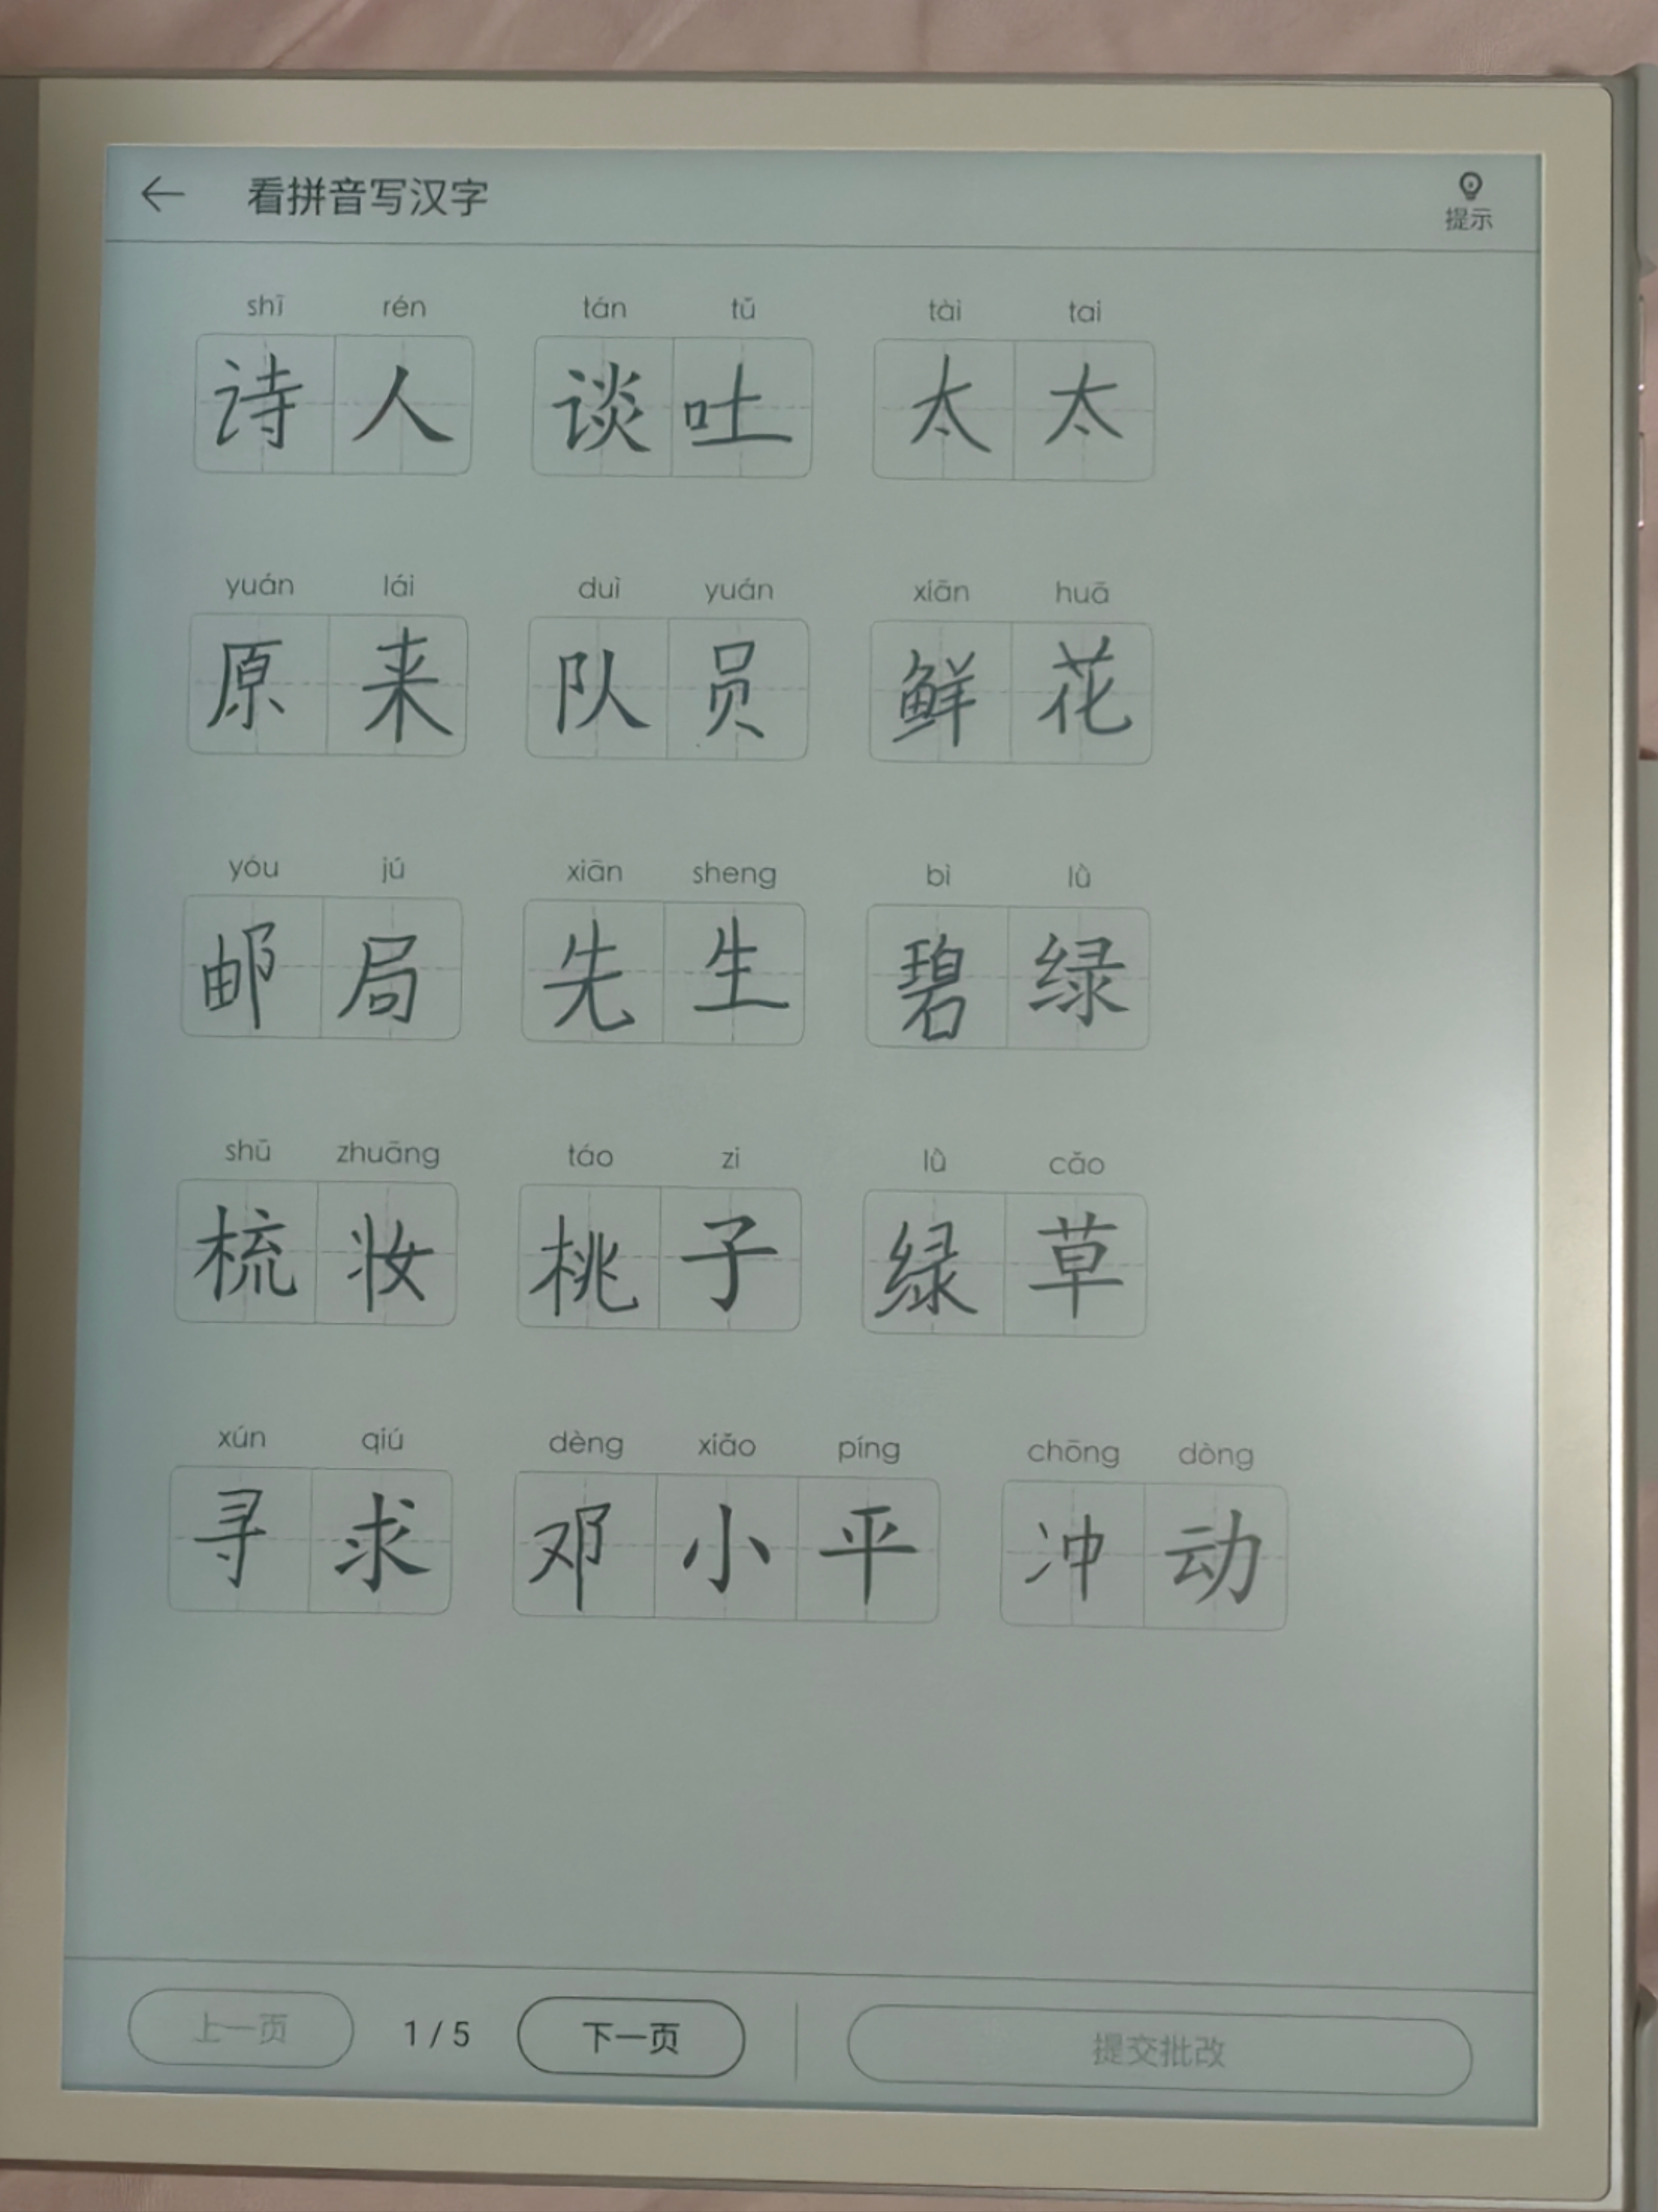 看拼音写汉字
提示
shī rén tán tǔ tài tai
诗人 谈吐 太太
yuán lái duì yuán xiān huā
原来 队员 鲜花
yóu jú xiān sheng bì lǜ
邮局 先生 碧绿
shū zhuāng táo zi lǜ cǎo
梳妆 桃子 绿草
xún qiú dèng xiǎo píng chōng dòng
寻求 邓小平 冲动
上一页 1 / 5 下一页 提交批改